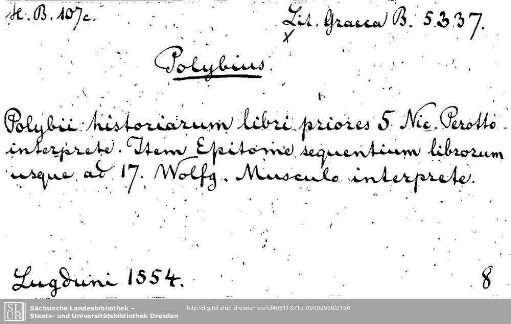 H. B. 107c.
Lit. Graeca B. 5337.
Polybius.
Polybii historiarum libri priores 5 Nic. Perotto
interprete. Item Epitome sequentium librorum
usque ad 17. Wolfg. Musculo interprete.
Lugduni 1554.
8
Sächsische Landesbibliothek –
Staats- und Universitätsbibliothek Dresden